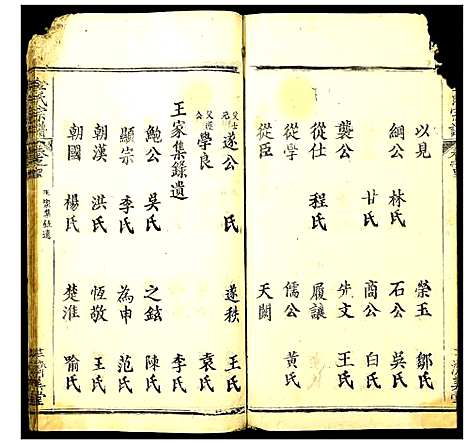 以見 榮玉 鄒氏
綱公 林氏 石公 吳氏
甘氏 商公 白氏
龔公 先文 王氏
從仕 程氏 履讓
從學 儒公 黃氏
從臣 天闕
遂公 氏 遂秩 王氏
學良 袁氏
王家集錄遺 李氏
鮑公 吳氏 之鉉 陳氏
顯宗 李氏 為申 范氏
朝漢 洪氏 恆敬 王氏
朝國 楊氏 楚淮 喻氏
氏宗譜